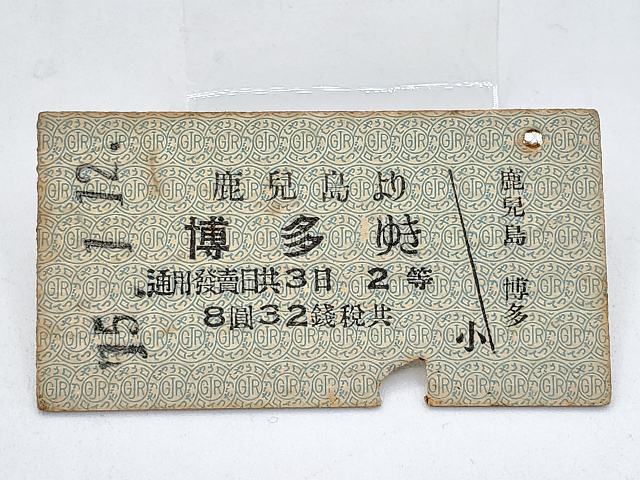 鹿兒島より
博多ゆき
通用發賣日共3日 2等
8圓32錢税共
鹿兒島 博多
小
15. 1 12.